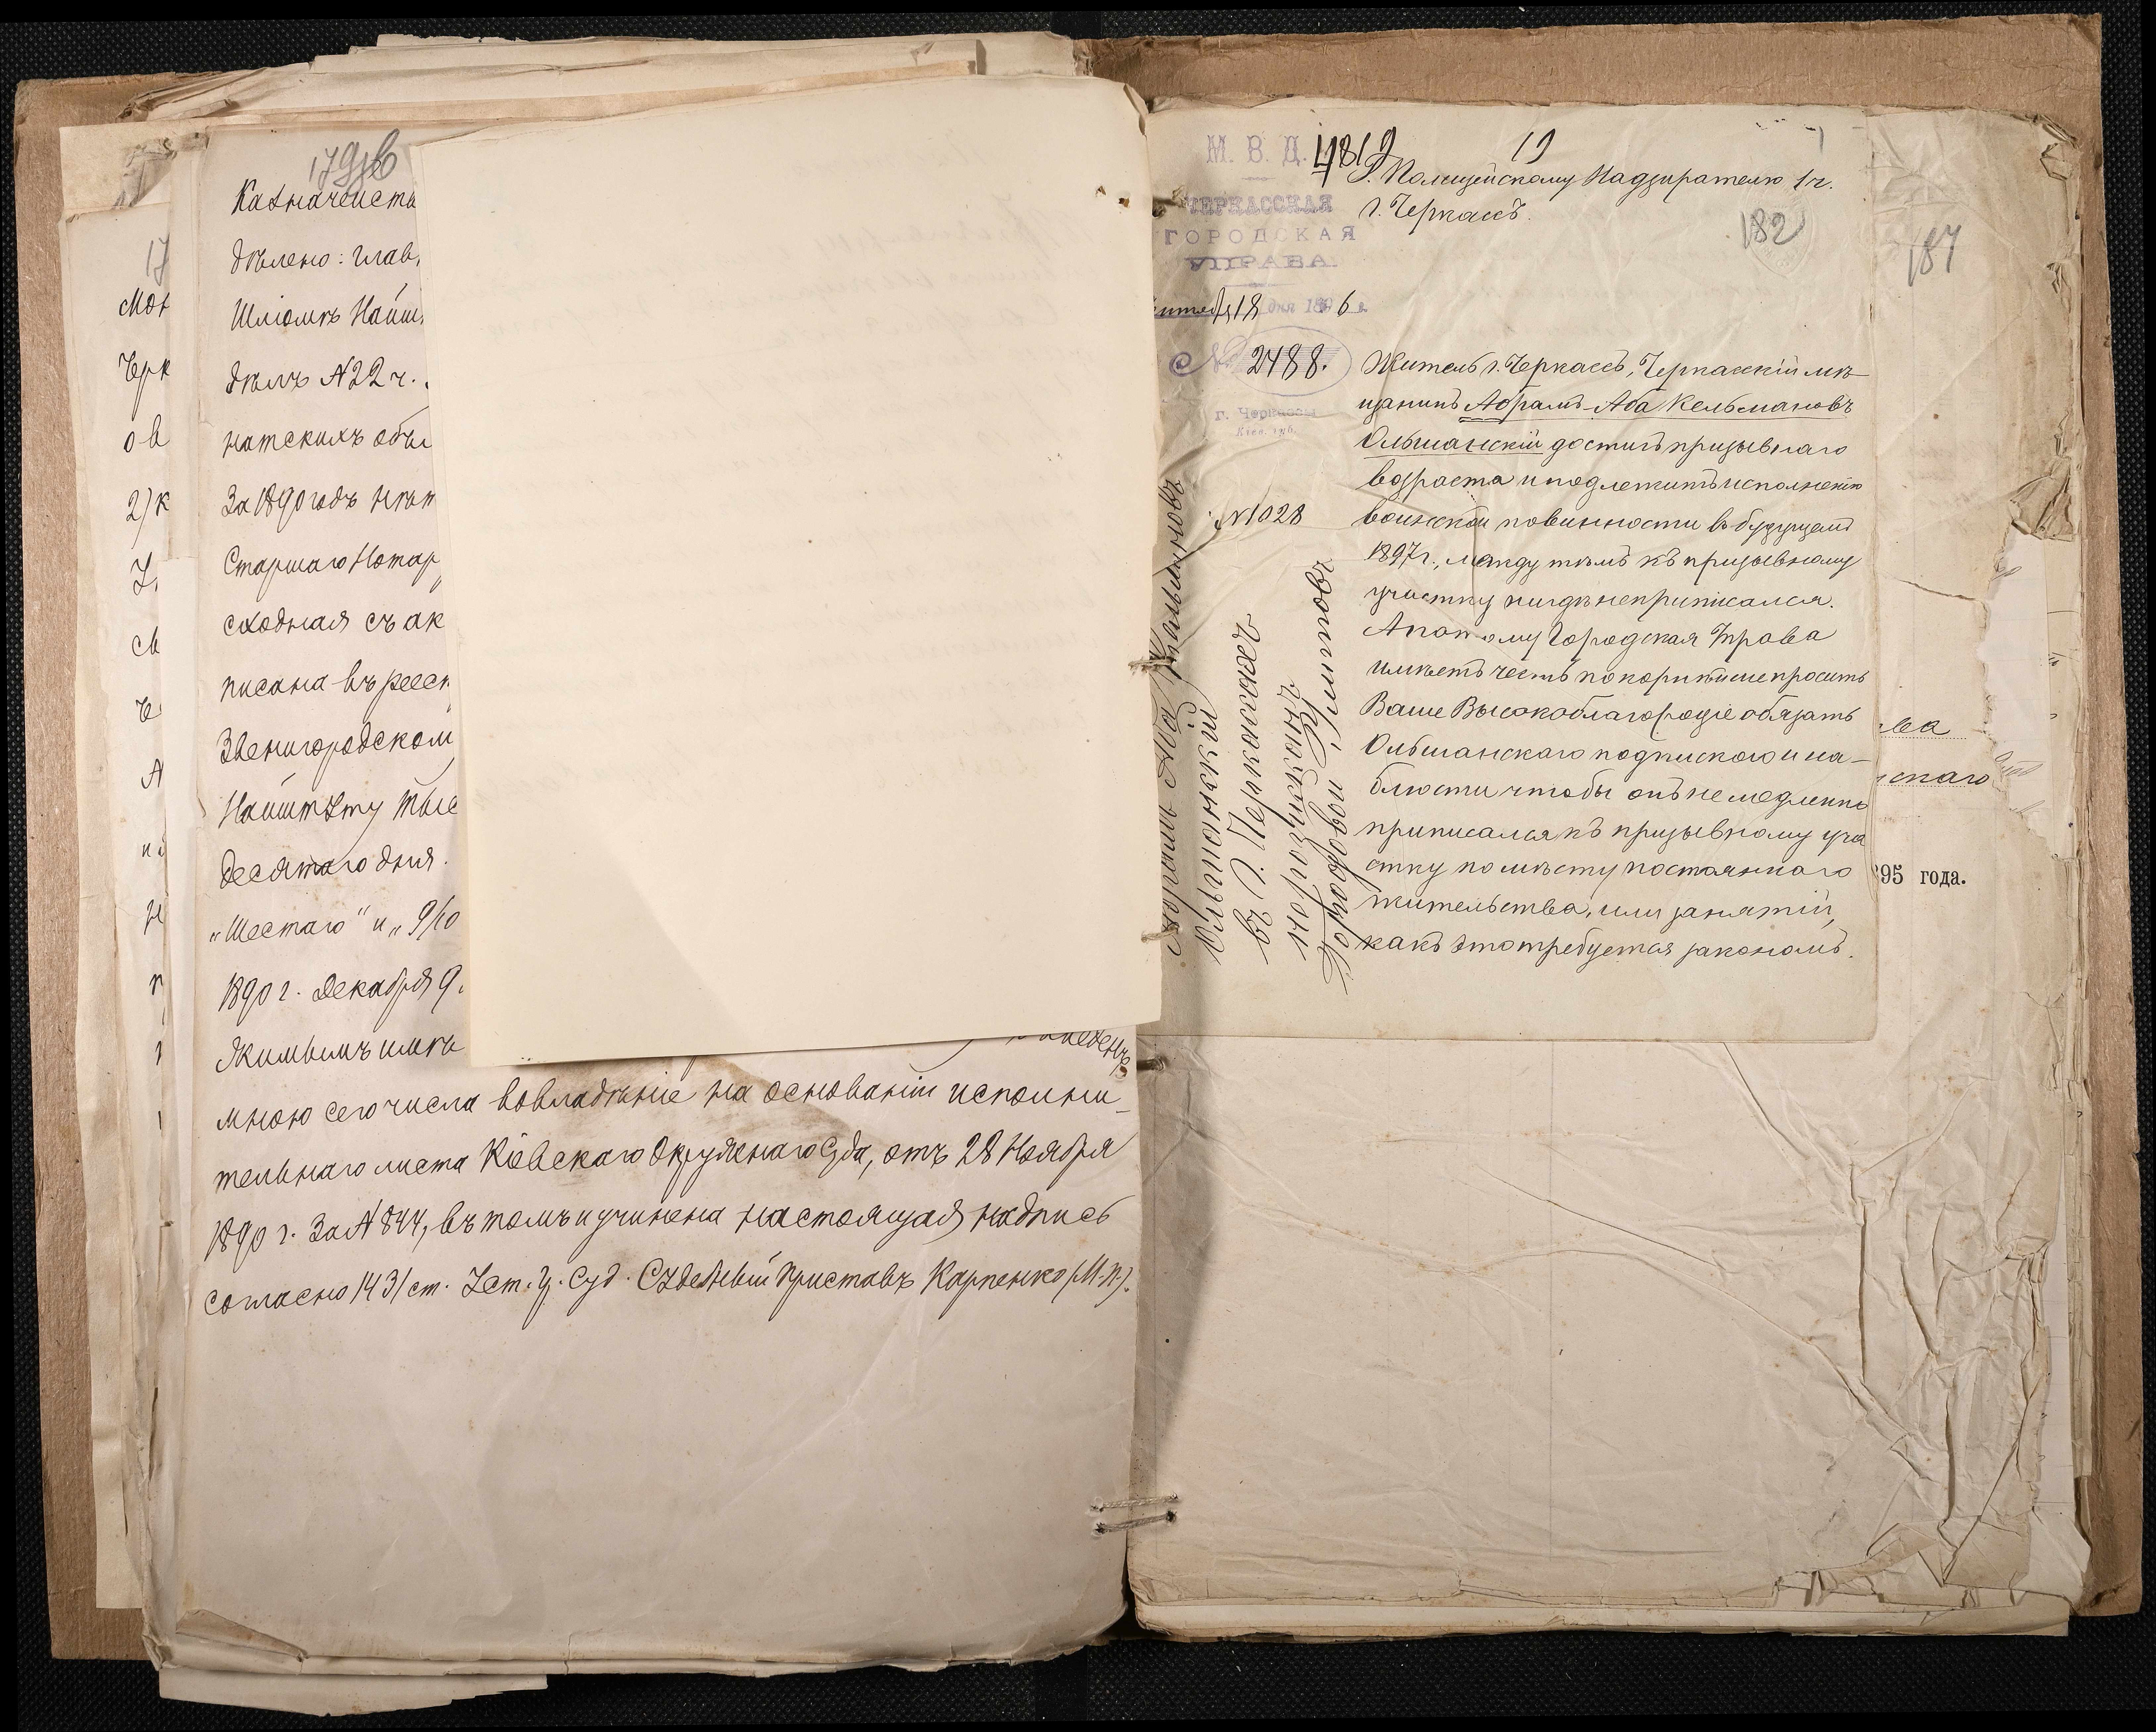 179об
Казначейств
дѣлено: глав,
Шліомѣ Найш,
дѣлъ N22 ч.
натскихъ объ
За 1890 годъ нѣт
Старшаго Нотар
сходная съ ак
писана въ реест
Звенигородском
Найштету тыс
десятаго дня.
„Шестаго" и „9/10
1890 г. Декабря 9
Якимымъ имѣ
введенъ
мною сего числа вовладѣніе на основаніи исполни-
тельнаго листа Кіевскаго Окружнаго Суда, отъ 28 Ноября
1890 г. За N 844, въ томъ и учинена настоящая надпись
согласно 1431 ст. Уст. Гр. Суд. Судебный Приставъ Карпенко (М.П.).
17
Мон
Черк
о в
2) к
У.
св
А
М. В. Д.
ЧЕРКАССКАЯ
ГОРОДСКАЯ
УПРАВА
18 дня 1896 г.
№ 2488.
г. Черкассы
Кіев. губ.
N1028
4819
19
Г. Полицейскому Надзирателю 1 ч.
г. Черкассъ.
182
Житель г. Черкассъ, Черкасскій мѣ-
щанинъ Абрамъ-Аба Кельмановъ
Ольшанскій достигъ призывнаго
возраста и подлежитъ исполненію
воинской повинности въ будущемъ
1897 г., между тѣмъ къ призывному
участку нигдѣ не приписался.
А потому Городская Управа
имѣетъ честь покорнѣйше просить
Ваше Высокоблагородіе обязать
Ольшанскаго подпискою и на-
блюсти чтобы онъ немедленно
приписался къ призывному уча
стку по мѣсту постояннаго
жительства, или занятій,
какъ это требуется закономъ.
Абрамъ Аба Кальмановъ
Ольшанскій
въ г. Черкассахъ
Городовой
187
ва
скаго
95 года.